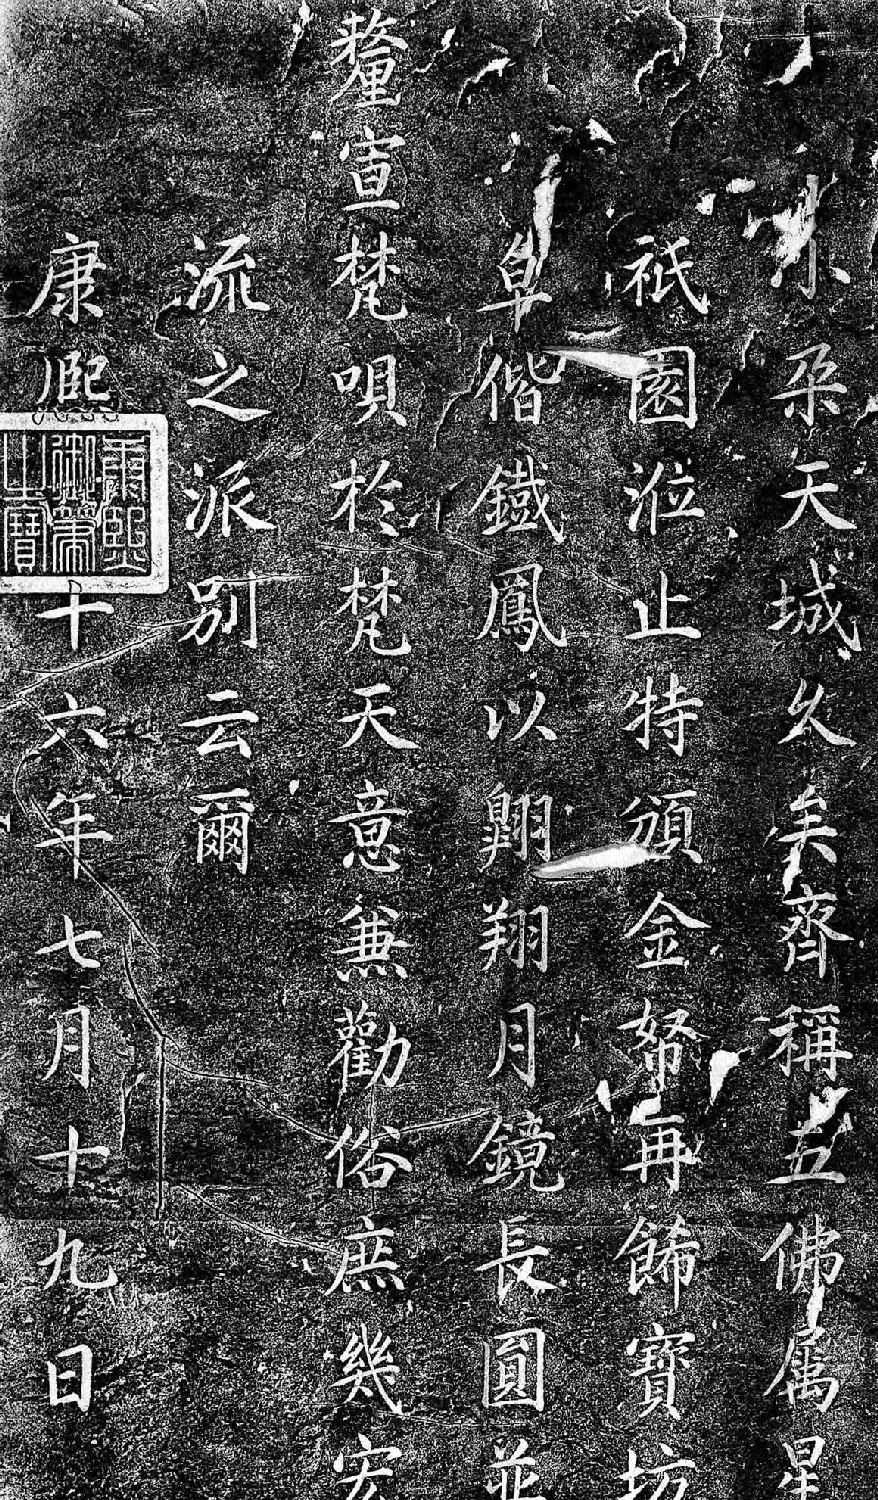 朶天城久矣齊稱五佛属星
祇園涖止特頒金帑再餙寶坊
卓偕鐵鳳以翺翔月鏡長圓並
釐宣梵唄於梵天意兼勸俗庶幾宏
流之派別云爾
康熙十六年七月十九日
康熙御筆之寶